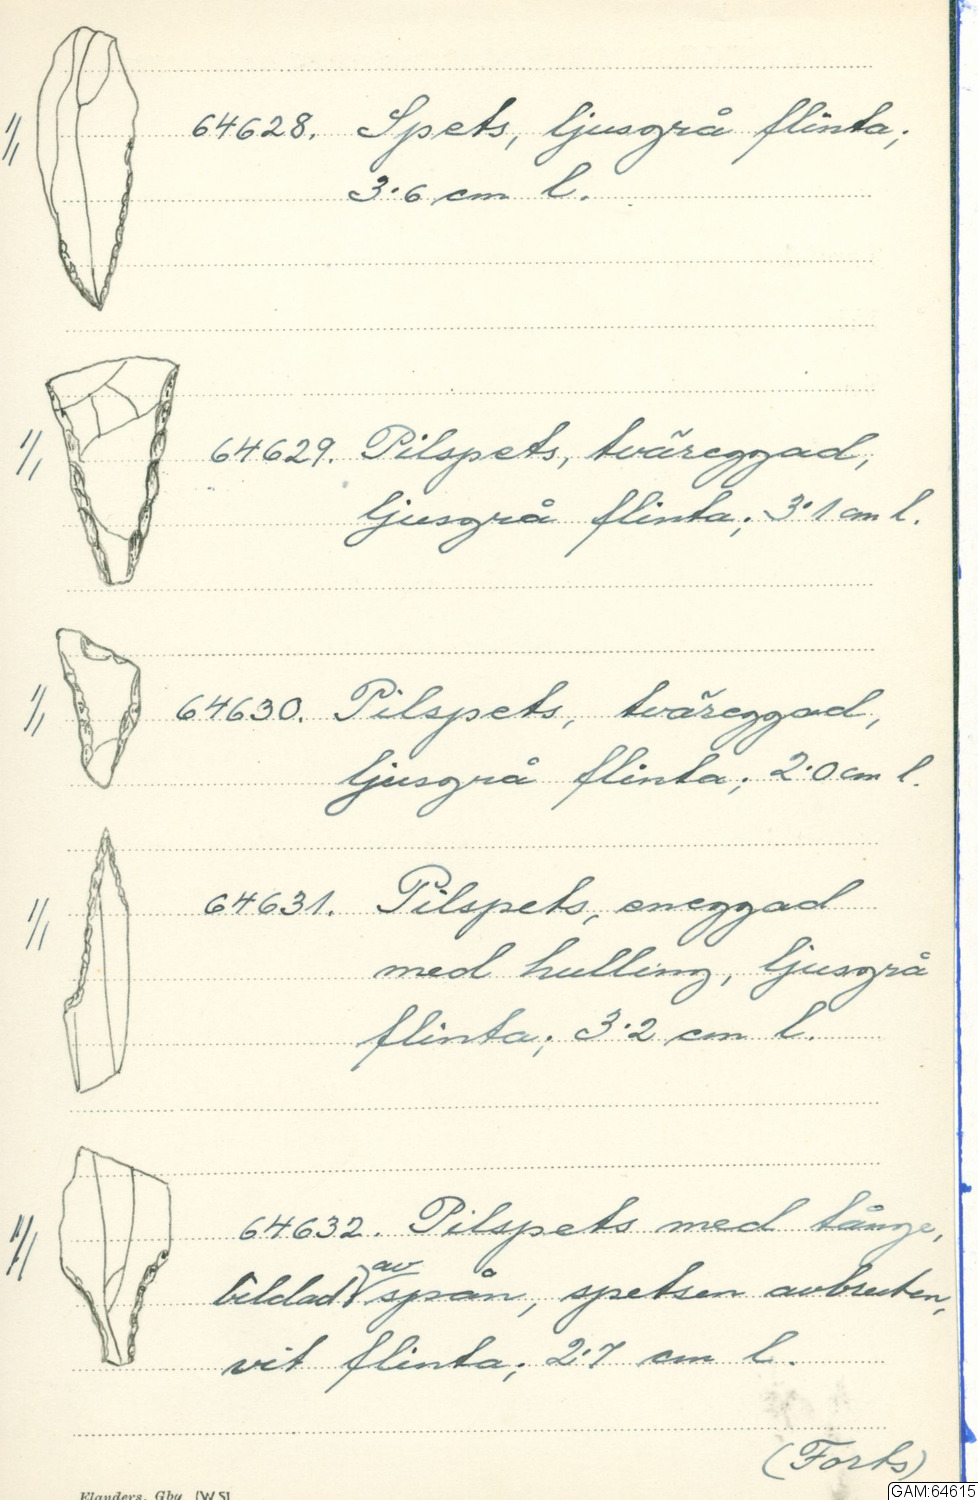 1/1 64628. Spets, ljusgrå flinta;
3·6 cm l.
1/1 64629. Pilspets, tväreggad,
ljusgrå flinta; 3·1 cm l.
1/1 64630. Pilspets, tväreggad,
ljusgrå flinta; 2·0 cm l.
1/1 64631. Pilspets, eneggad
med hulling, ljusgrå
flinta; 3·2 cm l.
1/1 64632. Pilspets med tånge,
bildad av spån, spetsen avbruten,
vit flinta; 2·7 cm l.
(Forts)
Flanders, Gbg (WS)
GAM:64615